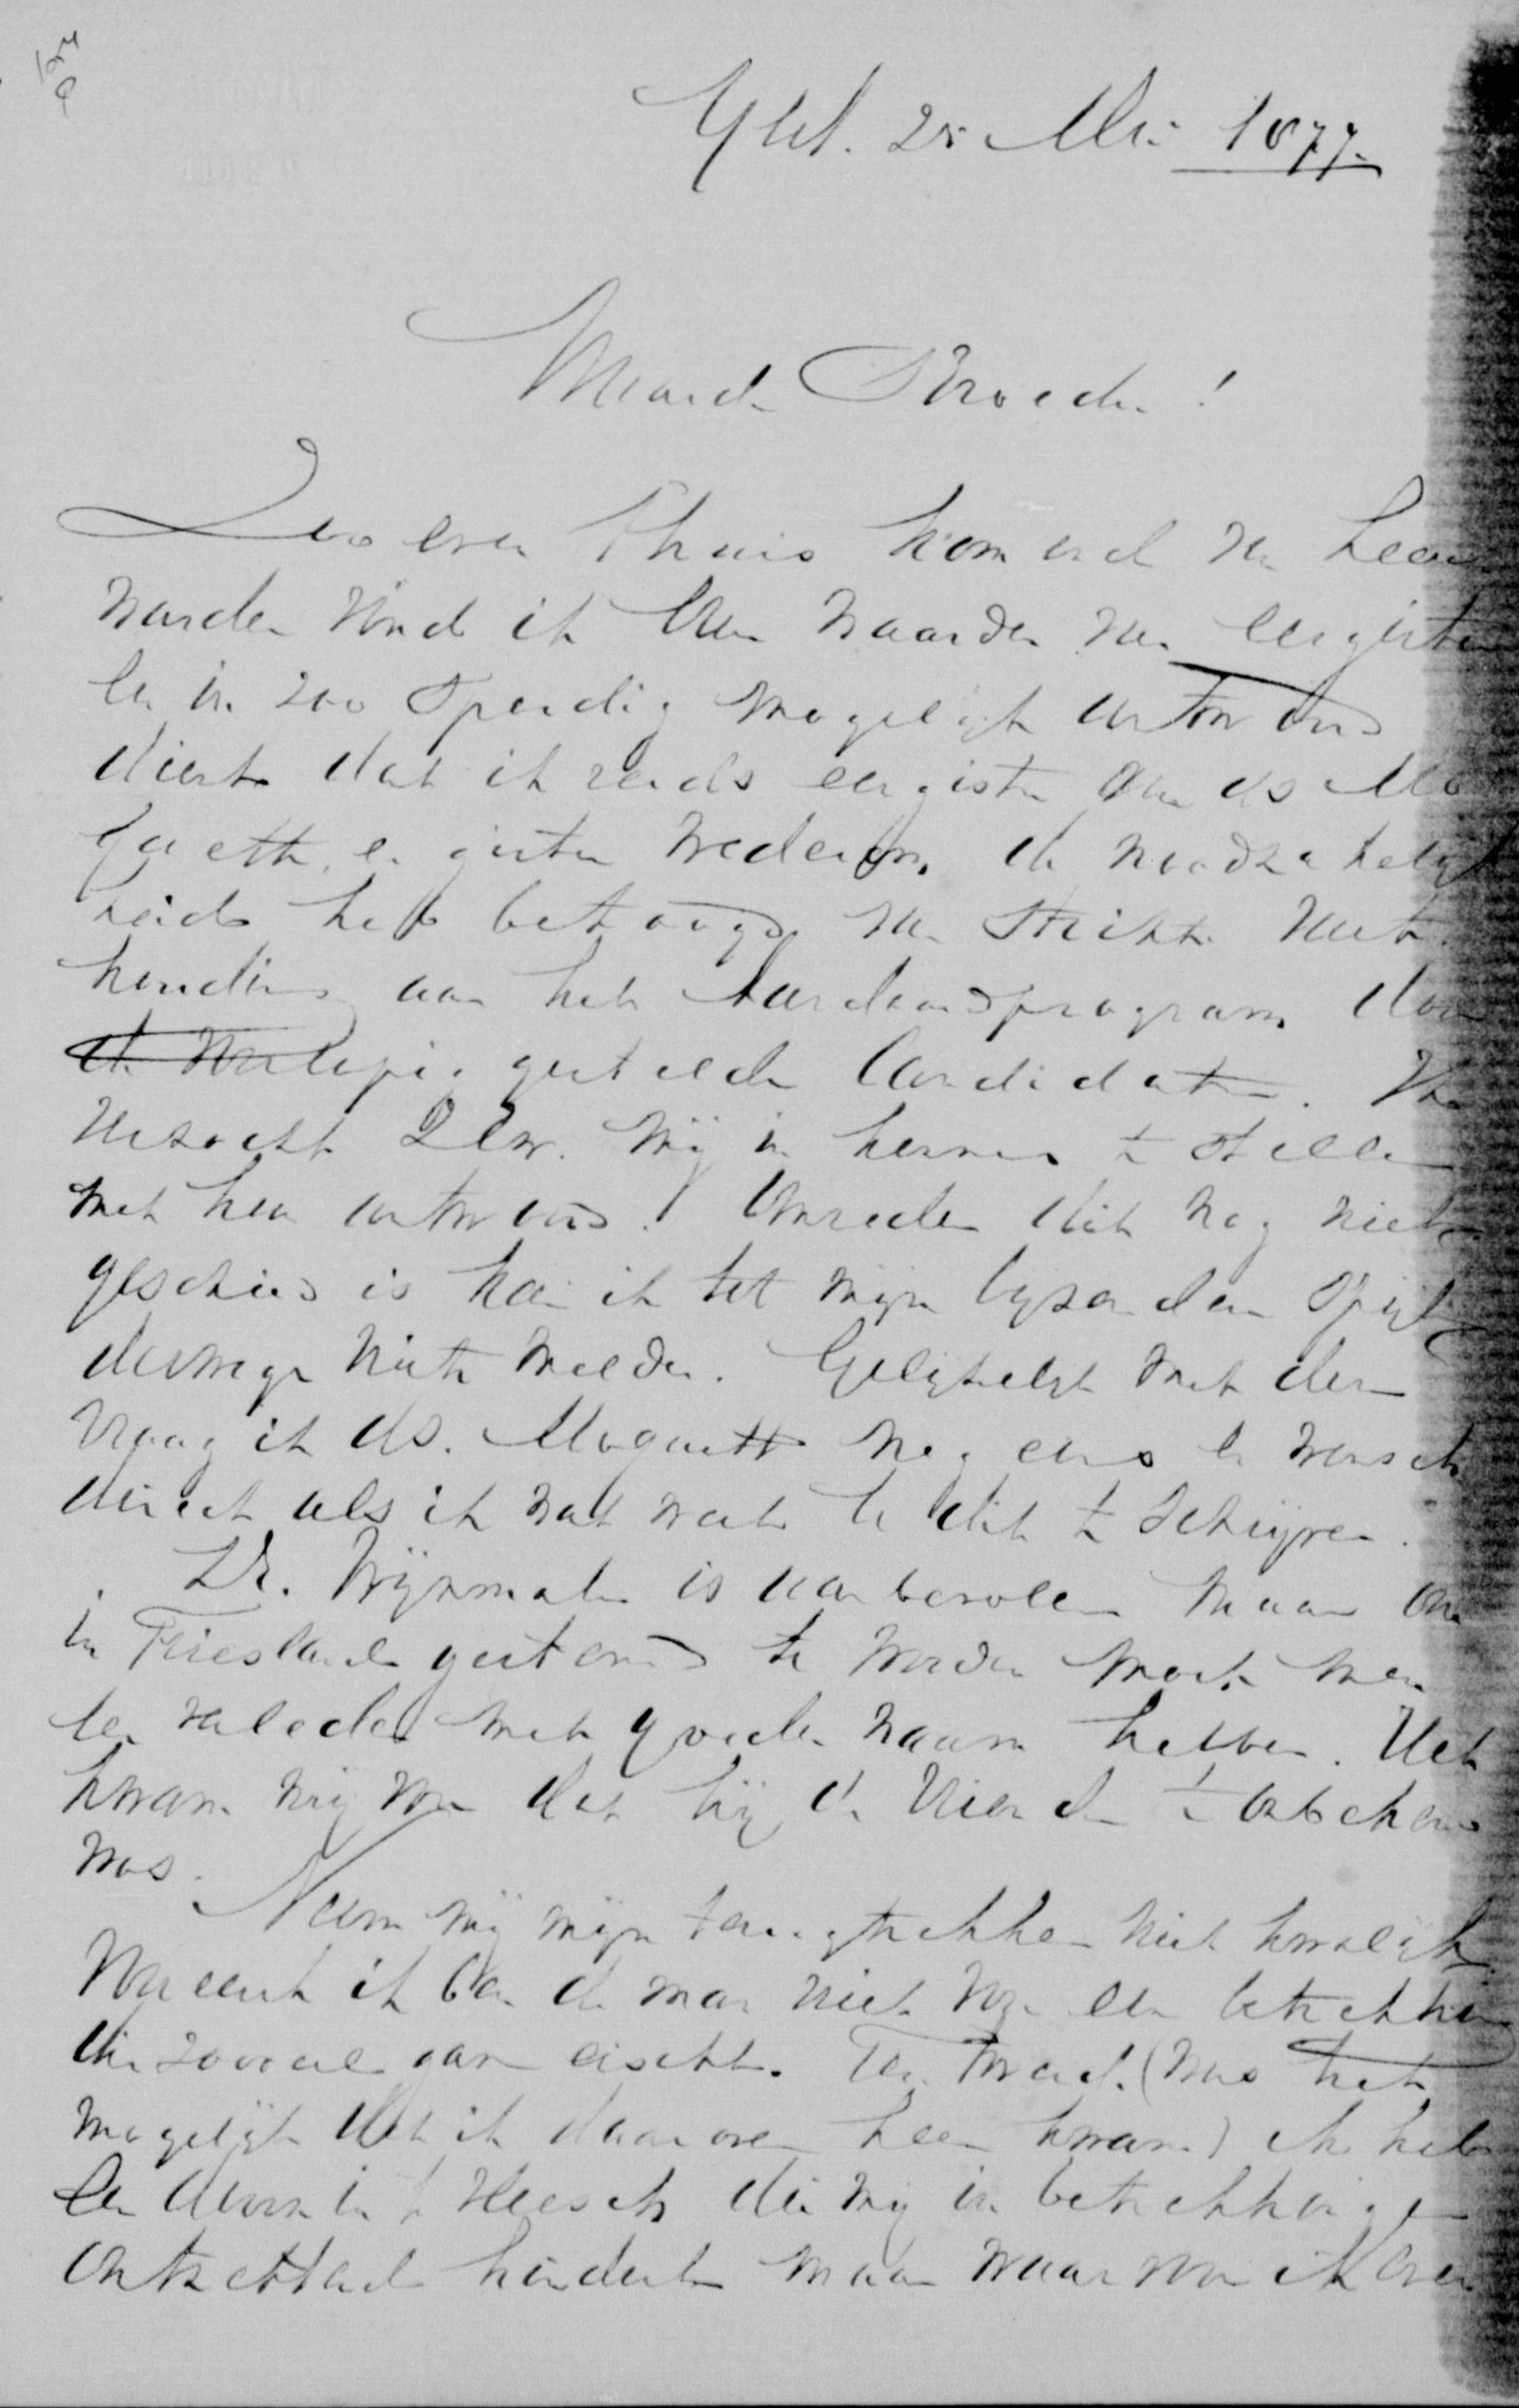 25 Mei 1877.
Waarde Broeder!
Zoo even thuis komend van Leeu
warden vind ik Uw waarde van eergisteren
en in zoo spoedig mogelijk antwoord
dient dat ik reeds eergister aan ds Mo
quette en gister wederom de noodzakelijk
heid heb betoogd van strikte vast
houding aan het Aardandsprogram door
gestelde Candidaten. Ik
verzocht ZEw. mij in kennis te stellen
met hun antwoord. Omreden dit nog niet
geschied is kan ik tot mijn bijzonder spijt
deswege niets melden. Gelijktijdig met dezen
vraag ik ds. Moquette nog eens en wensch
direct als ik wat weet U dit te schrijven.
Dr. Wijnmalen is aanbevolen maar om
in Friesland gesteund te worden moet men
een verleden met goeden naam hebben. Het
kwam mij voor dat hij de vrienden te onbekend
was.
Neem mij mijn terugtrekken niet kwalijk.
Vooreerst ik ben de man niet voor een betrekking
die zooveel gaven eischt. Ten tweede (was het
mogelijk dat ik daarover heen kwam) ik heb
een doorn in 't vleesch die mij in betrekkingen
ontzettend hindert maar waarvan ik even